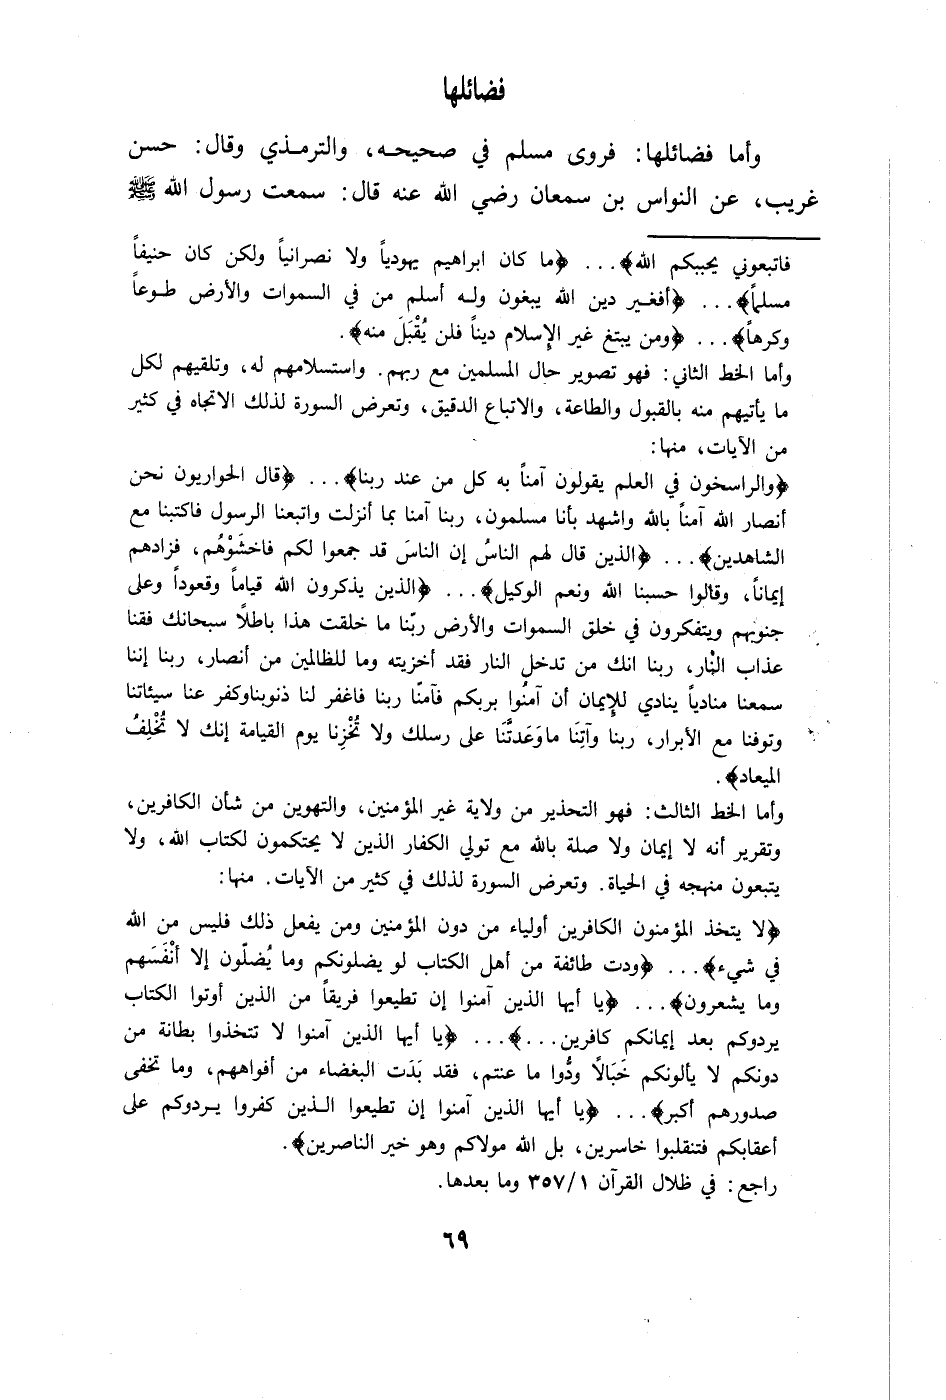 فضائلها
وأما فضائلها: فروى مسلم في صحيحـه، والترمـذي وقال: حسن
غريب، عن النواس بن سمعان رضي الله عنه قال: سمعت رسول الله ﷺ
فاتبعوني يحببكم الله﴾... ﴿ما كان ابراهيم يهودياً ولا نصرانياً ولكن كان حنيفاً
مسلماً﴾... ﴿أفغـير دين الله يبغون ولـه أسلم من في السموات والأرض طـوعاً
وكرهاً﴾... ﴿ومن يبتغ غير الإسلام ديناً فلن يُقْبَلَ منه﴾.
وأما الخط الثاني: فهو تصوير حال المسلمين مع ربهم. واستسلامهم له، وتلقيهم لكل
ما يأتيهم منه بالقبول والطاعة، والاتباع الدقيق، وتعرض السورة لذلك الاتجاه في كثير
من الآيات، منها:
﴿والراسخون في العلم يقولون آمناً به كل من عند ربنا﴾... ﴿قال الحواريون نحن
أنصار الله آمناً بالله واشهد بأنا مسلمون، ربنا آمنا بما أنزلت واتبعنا الرسول فاكتبنا مع
الشاهدين﴾... ﴿الذين قال لهم الناسُ إن الناسَ قد جمعوا لكم فاخشَوْهُم، فزادهم
إيماناً، وقالوا حسبنا الله ونعم الوكيل﴾... ﴿الذين يذكرون الله قياماً وقعوداً وعلى
جنوبهم ويتفكرون في خلق السموات والأرض ربّنا ما خلقت هذا باطلاً سبحانك فقنا
عذاب النار، ربنا انك من تدخل النار فقد أخزيته وما للظالمين من أنصار، ربنا إننا
سمعنا منادياً ينادي للإيمان أن آمنُوا بربكم فآمنّا ربنا فاغفر لنا ذنوبناوكفر عنا سيئاتنا
وتوفنا مع الأبرار، ربنا وآتِنَا ماوَعَدتَّنَا على رسلك ولا تُخْزِنا يوم القيامة إنك لا تُخْلِفُ
الميعاد﴾.
وأما الخط الثالث: فهو التحذير من ولاية غير المؤمنين، والتهوين من شأن الكافرين،
وتقرير أنه لا إيمان ولا صلة بالله مع تولي الكفار الذين لا يحتكمون لكتاب الله، ولا
يتبعون منهجه في الحياة. وتعرض السورة لذلك في كثير من الآيات. منها:
﴿لا يتخذ المؤمنون الكافرين أولياء من دون المؤمنين ومن يفعل ذلك فليس من الله
في شيء﴾... ﴿ودت طائفة من أهل الكتاب لو يضلونكم وما يُضلّون إلا أنْفَسَهم
وما يشعرون﴾... ﴿يا أيها الذين آمنوا إن تطيعوا فريقاً من الذين أوتوا الكتاب
يردوكم بعد إيمانكم كافرين...﴾... ﴿يا أيها الذين آمنوا لا تتخذوا بطانة من
دونكم لا يألونكم خَبَالاً ودُّوا ما عنتم، فقد بَدَت البغضاء من أفواههم، وما تخفى
صدورهم أكبر﴾... ﴿يا أيها الذين آمنوا إن تطيعوا الـذين كفروا يـردوكم على
أعقابكم فتنقلبوا خاسرين، بل الله مولاكم وهو خير الناصرين﴾.
راجع: في ظلال القرآن ٣٥٧/١ وما بعدها.
٦٩